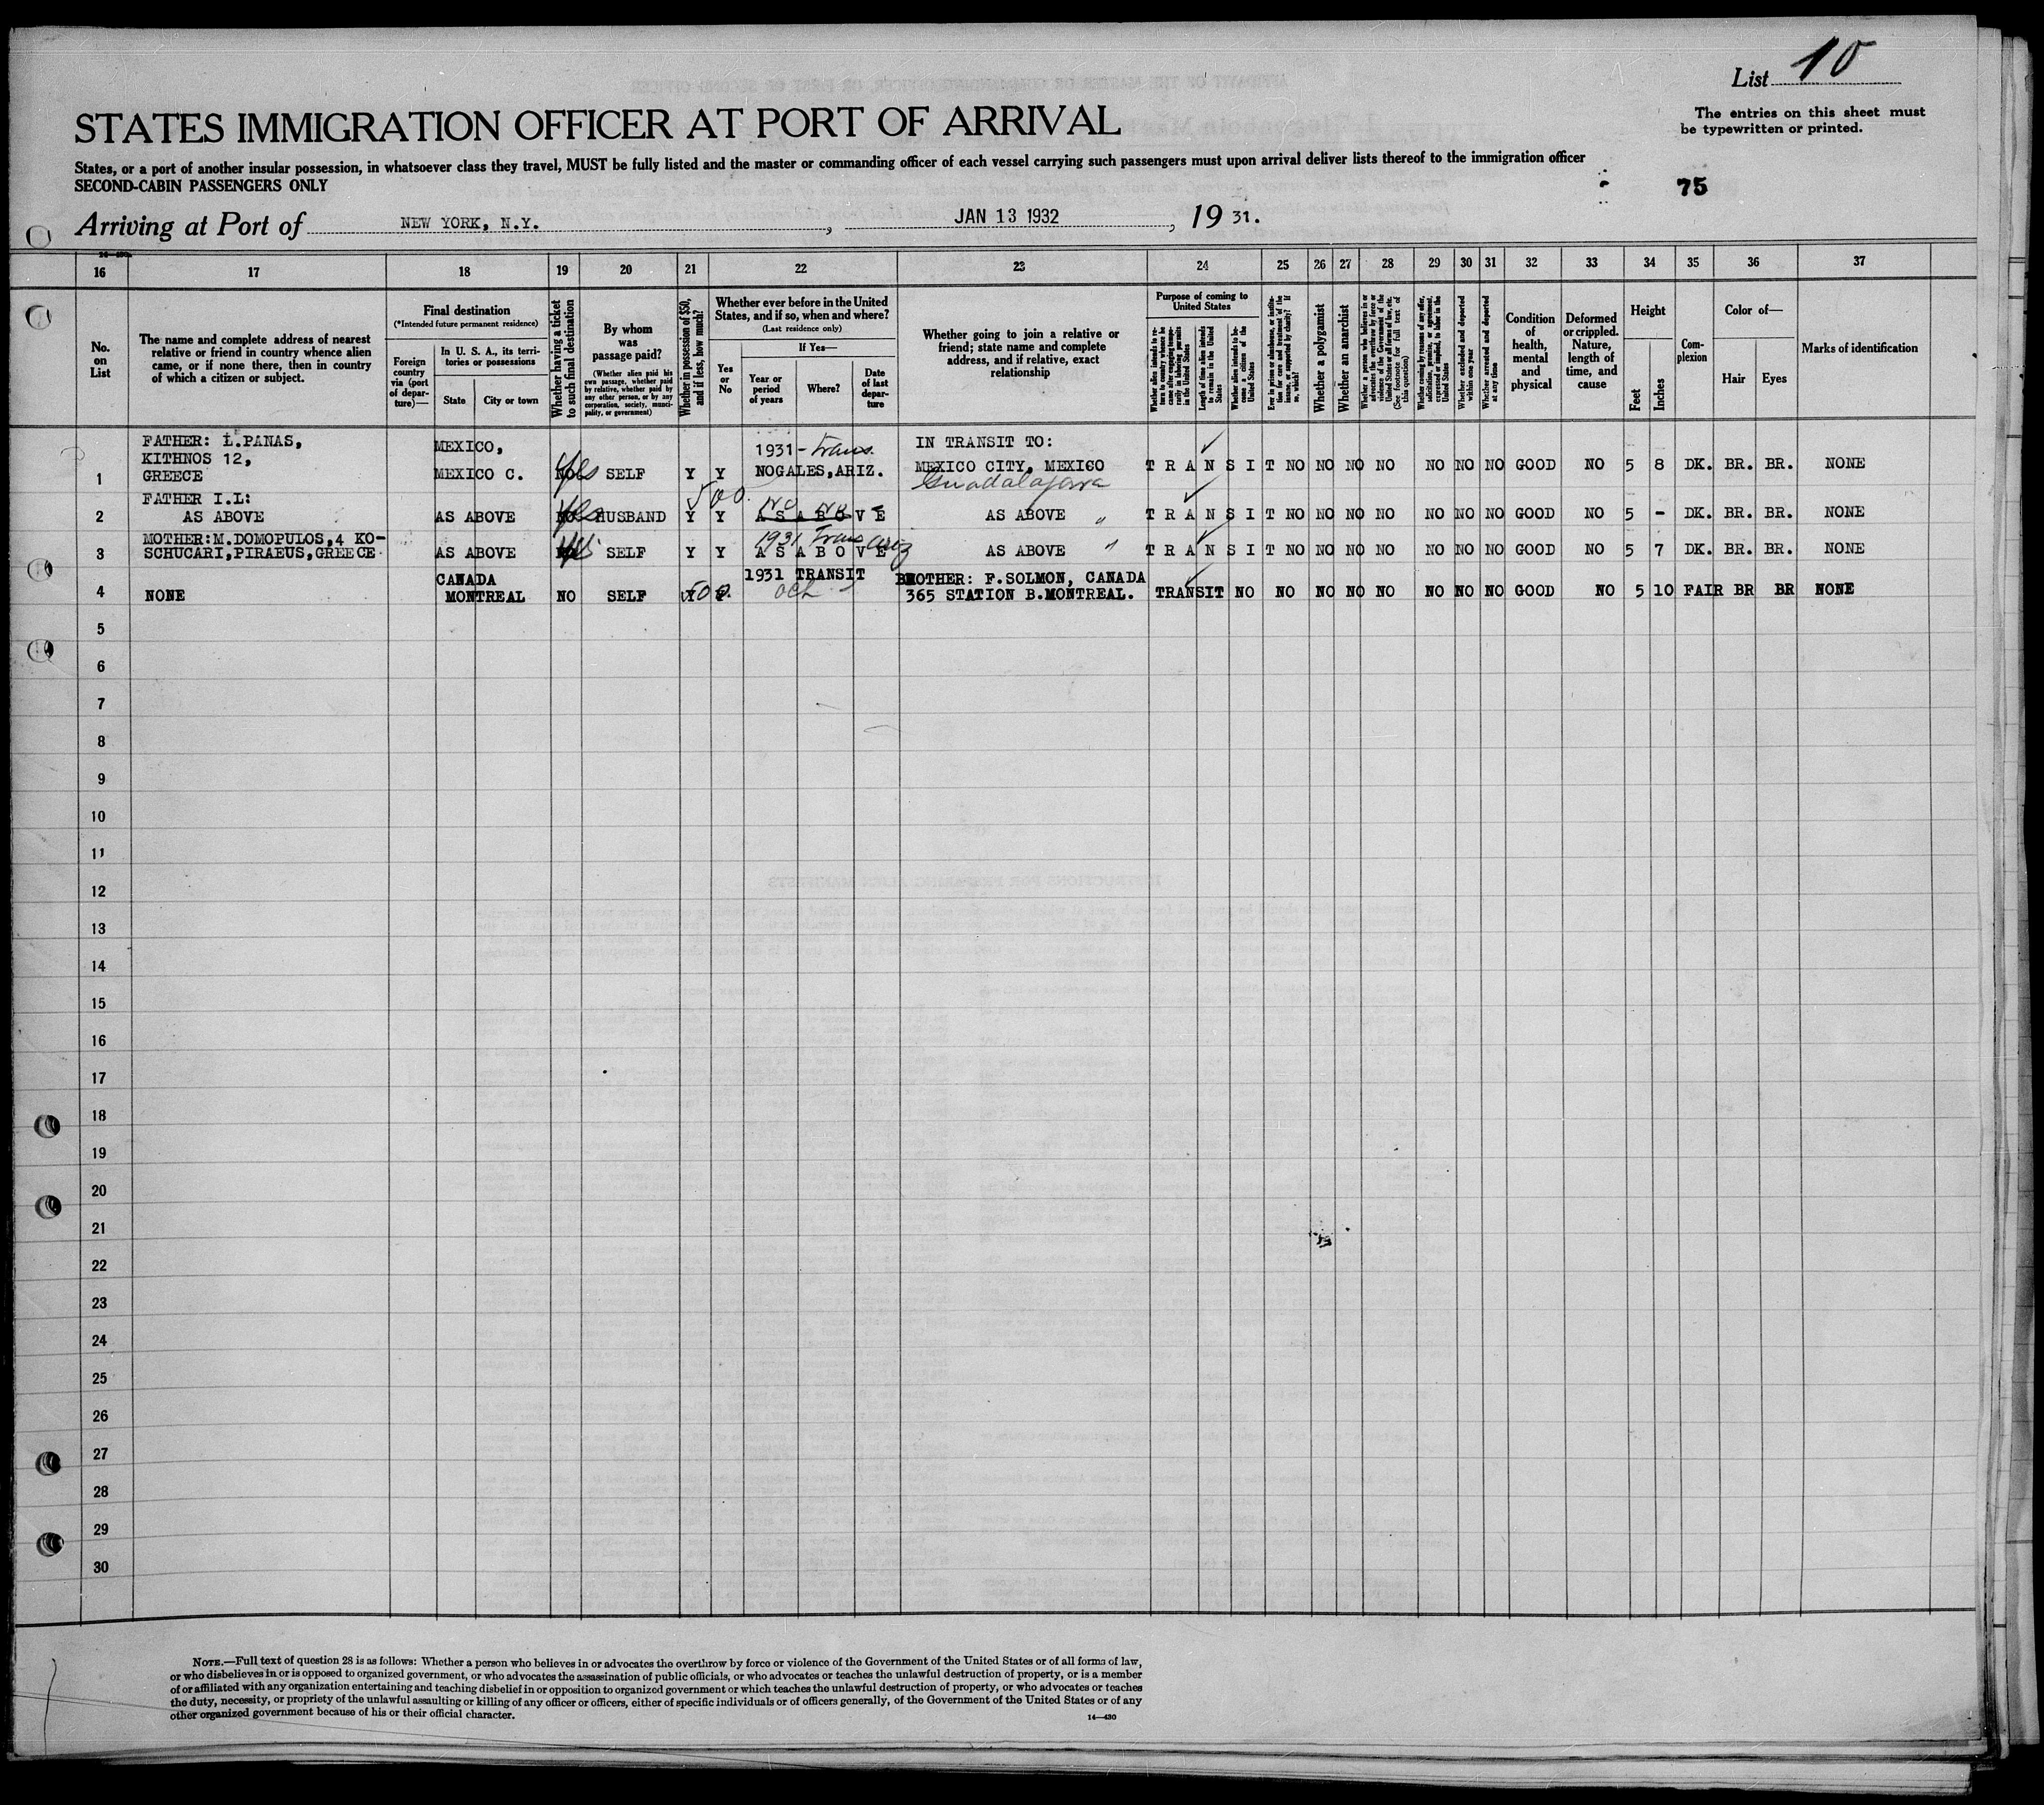 List 10
The entries on this sheet must
be typewritten or printed.
STATES IMMIGRATION OFFICER AT PORT OF ARRIVAL
States, or a port of another insular possession, in whatsoever class they travel, MUST be fully listed and the master or commanding officer of each vessel carrying such passengers must upon arrival deliver lists thereof to the immigration officer
SECOND-CABIN PASSENGERS ONLY
75
Arriving at Port of NEW YORK, N.Y. , JAN 13 1932 , 19 31.
16 17 18 19 20 21 22 23 24 25 26 27 28 29 30 31 32 33 34 35 36 37
No.
on
List
The name and complete address of nearest
relative or friend in country whence alien
came, or if none there, then in country
of which a citizen or subject.
Final destination
(*Intended future permanent residence)
Foreign
country
via (port
of depar-
ture)—
In U. S. A., its terri-
tories or possessions
State City or town
Whether having a ticket
to such final destination
By whom
was
passage paid?
(Whether alien paid his
own passage, whether paid
by relative, whether paid by
any other person, or by any
corporation, society, munici-
pality, or government)
Whether in possession of $50,
and if less, how much?
Whether ever before in the United
States, and if so, when and where?
(Last residence only)
Yes
or
No
If Yes—
Year or
period
of years
Where?
Date
of last
depar-
ture
Whether going to join a relative or
friend; state name and complete
address, and if relative, exact
relationship
Purpose of coming to
United States
Whether alien intends to re-
turn to country whence he
came after engaging tempo-
rarily in laboring pursuits
in the United States
Length of time alien intends
to remain in the United
States
Whether alien intends to be-
come a citizen of the
United States
Ever in prison or almshouse, or institu-
tion for care and treatment of the
insane, or supported by charity? If
so, which?
Whether a polygamist
Whether an anarchist
Whether a person who believes in or
advocates the overthrow by force or
violence of the Government of the
United States or all forms of law, etc.
(See footnote for full text of
this question)
Whether coming by reason of any offer,
solicitation, promise, or agreement,
expressed or implied, to labor in the
United States
Whether excluded and deported
within one year
Whether arrested and deported
at any time
Condition
of
health,
mental
and
physical
Deformed
or crippled.
Nature,
length of
time, and
cause
Height
Feet Inches
Com-
plexion
Color of—
Hair Eyes
Marks of identification
FATHER: L.PANAS, MEXICO, 1931-trans. IN TRANSIT TO:
KITHNOS 12,
1 GREECE MEXICO C. Yes SELF Y Y NOGALES,ARIZ. MEXICO CITY, MEXICO T R A N S I T NO NO NO NO NO NO NO GOOD NO 5 8 DK. BR. BR. NONE
Guadalajara
FATHER I.L: 500. No No
2 AS ABOVE AS ABOVE Yes HUSBAND Y Y A S A B O V E AS ABOVE " T R A N S I T NO NO NO NO NO NO NO GOOD NO 5 - DK. BR. BR. NONE
MOTHER:M.DOMOPULOS,4 KO- 1931 Trans Ariz
3 SCHUCARI,PIRAEUS,GREECE AS ABOVE Yes SELF Y Y A S A B O V E AS ABOVE " T R A N S I T NO NO NO NO NO NO NO GOOD NO 5 7 DK. BR. BR. NONE
CANADA 1931 TRANSIT BROTHER: F.SOLMON, CANADA
4 NONE MONTREAL NO SELF 500. Y 365 STATION B.MONTREAL. TRANSIT NO NO NO NO NO NO NO NO GOOD NO 5 10 FAIR BR BR NONE
5
6
7
8
9
10
11
12
13
14
15
16
17
18
19
20
21
22
23
24
25
26
27
28
29
30
NOTE.—Full text of question 28 is as follows: Whether a person who believes in or advocates the overthrow by force or violence of the Government of the United States or of all forms of law,
or who disbelieves in or is opposed to organized government, or who advocates the assassination of public officials, or who advocates or teaches the unlawful destruction of property, or is a member
of or affiliated with any organization entertaining and teaching disbelief in or opposition to organized government or which teaches the unlawful destruction of property, or who advocates or teaches
the duty, necessity, or propriety of the unlawful assaulting or killing of any officer or officers, either of specific individuals or of officers generally, of the Government of the United States or of any
other organized government because of his or their official character.
14—430